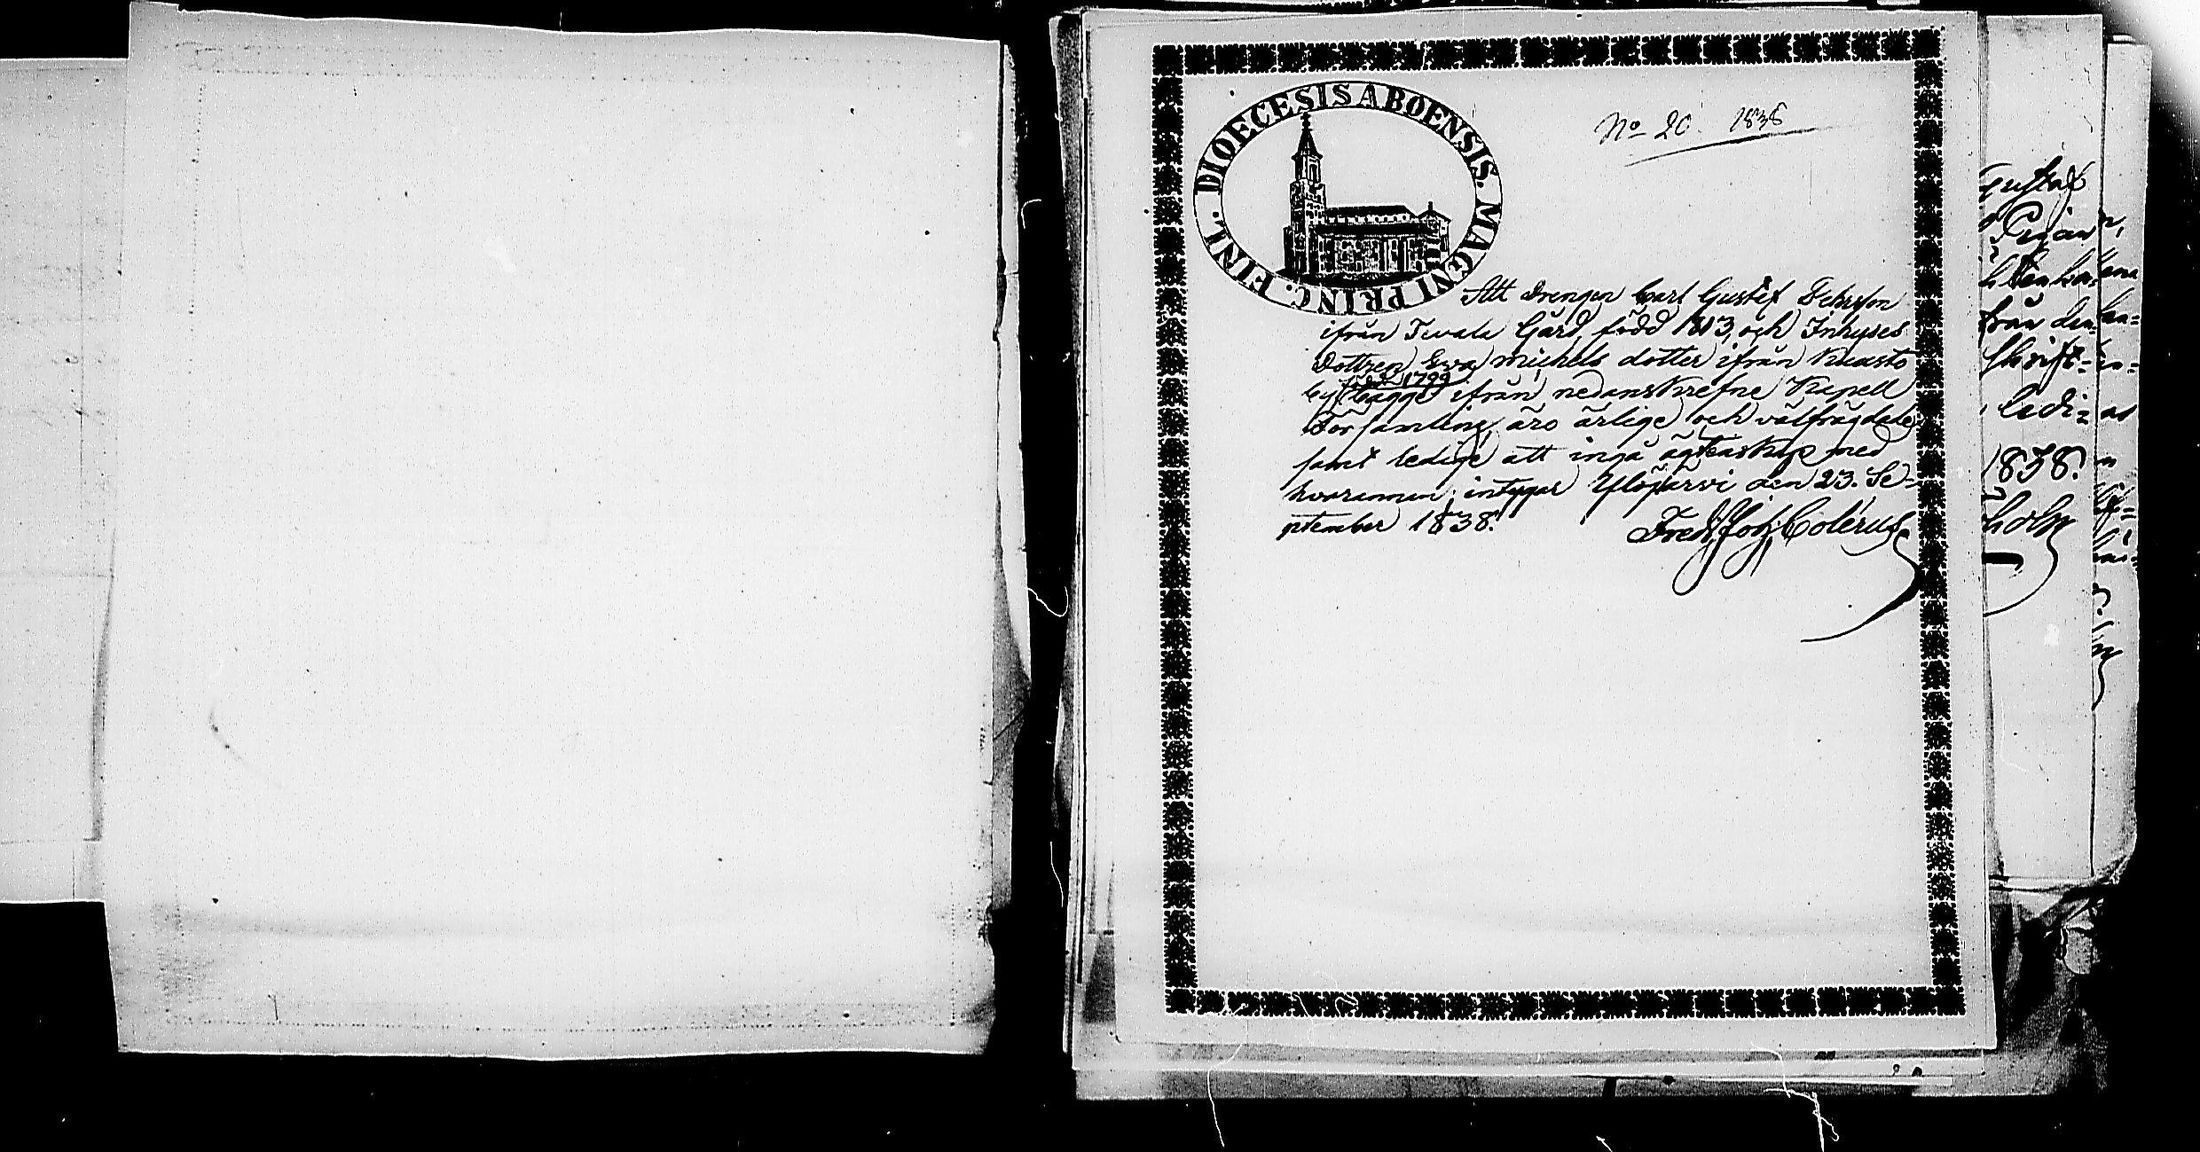 DIOECESIS ABOENSIS. MAGNI PRINC. FINL.
No 20. 1838
Att Drengen Carl Gustaf
ifrån Gård, född 1813, och Inhyses
Dottren Ewa Michels dotter ifrån Keasto
född 1799
by bägge ifrån nedanskrefne Kapell
Församling, äro ärlige och välfrägdade
samt ledige att ingå ägtaskap med
hvarannan; intygar Ylöjärvi den 23. Se-
ptember 1838.
Fredr. Joh. Colérus
Gustaf
från den
Skrift-
ledi-
1838.
holm